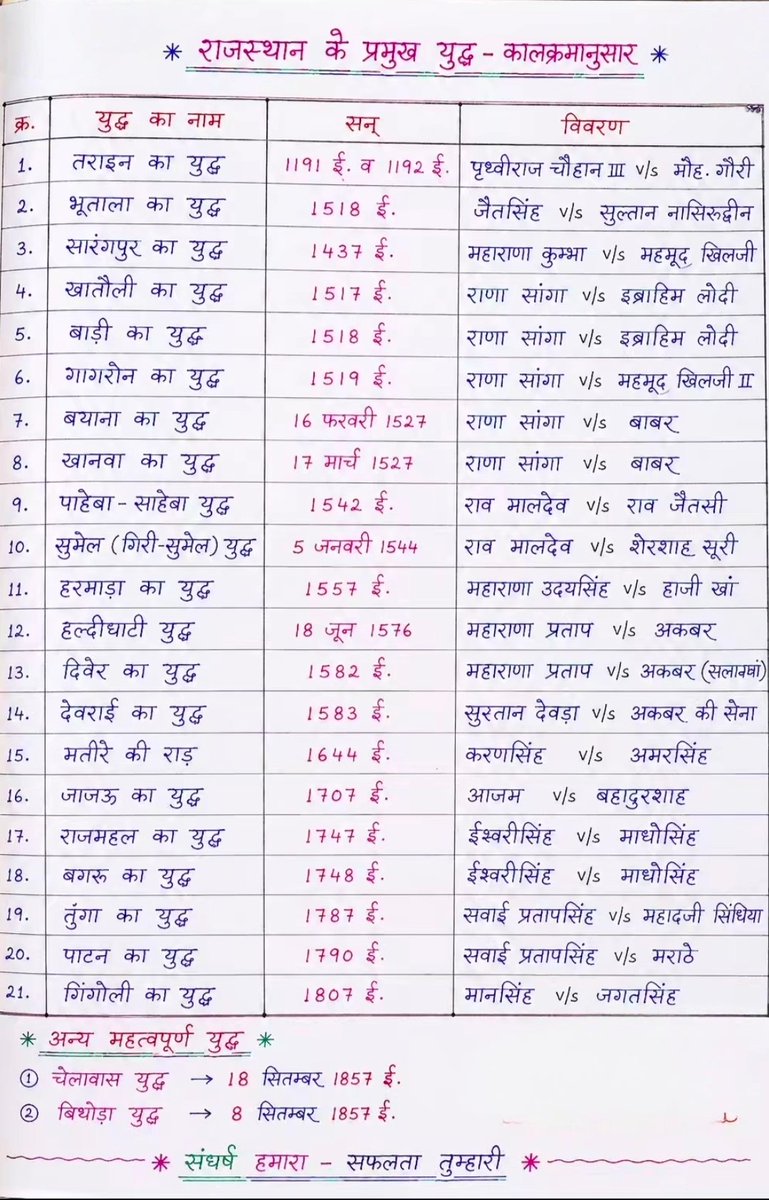 * राजस्थान के प्रमुख युद्ध - कालक्रमानुसार *
क्र. युद्ध का नाम सन् विवरण
1. तराइन का युद्ध 1191 ई. व 1192 ई. पृथ्वीराज चौहान III v/s मौह. गौरी
2. भूताला का युद्ध 1518 ई. जैतसिंह v/s सुल्तान नासिरुद्दीन
3. सारंगपुर का युद्ध 1437 ई. महाराणा कुम्भा v/s महमूद खिलजी
4. खातौली का युद्ध 1517 ई. राणा सांगा v/s इब्राहिम लोदी
5. बाड़ी का युद्ध 1518 ई. राणा सांगा v/s इब्राहिम लोदी
6. गागरोन का युद्ध 1519 ई. राणा सांगा v/s महमूद खिलजी II
7. बयाना का युद्ध 16 फरवरी 1527 राणा सांगा v/s बाबर
8. खानवा का युद्ध 17 मार्च 1527 राणा सांगा v/s बाबर
9. पाहेबा - साहेबा युद्ध 1542 ई. राव मालदेव v/s राव जैतसी
10. सुमेल (गिरी-सुमेल) युद्ध 5 जनवरी 1544 राव मालदेव v/s शेरशाह सूरी
11. हरमाड़ा का युद्ध 1557 ई. महाराणा उदयसिंह v/s हाजी खां
12. हल्दीघाटी युद्ध 18 जून 1576 महाराणा प्रताप v/s अकबर
13. दिवेर का युद्ध 1582 ई. महाराणा प्रताप v/s अकबर
14. देवराई का युद्ध 1583 ई. सुरतान देवड़ा v/s अकबर की सेना
15. मतीरे की राड़ 1644 ई. करणसिंह v/s अमरसिंह
16. जाजऊ का युद्ध 1707 ई. आजम v/s बहादुरशाह
17. राजमहल का युद्ध 1747 ई. ईश्वरीसिंह v/s माधोसिंह
18. बगरू का युद्ध 1748 ई. ईश्वरीसिंह v/s माधोसिंह
19. तुंगा का युद्ध 1787 ई. सवाई प्रतापसिंह v/s महादजी सिंधिया
20. पाटन का युद्ध 1790 ई. सवाई प्रतापसिंह v/s मराठे
21. गिंगोली का युद्ध 1807 ई. मानसिंह v/s जगतसिंह
* अन्य महत्वपूर्ण युद्ध *
① चेलावास युद्ध → 18 सितम्बर 1857 ई.
② बिथोड़ा युद्ध → 8 सितम्बर 1857 ई.
* संघर्ष हमारा - सफलता तुम्हारी *